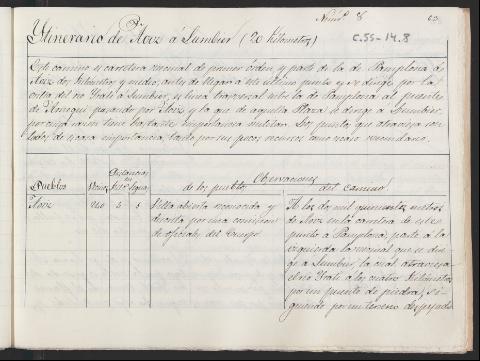 Núm. 8
63
Itinerario de Aoiz á Lumbier (20 kilómetros)
C.55-14.8
Este camino es carretera vecinal de primer órden, y parte de la de Pamplona á
Aoiz dos kilómetros y medio, antes de llegar á este último punto y se dirije por la
orilla del rio Irati á Lumbier, es linea trasversal entre la de Pamplona al puente
de pasando por Aoiz y la que de aquella Plaza se dirije á
por cuya razon tiene bastante importancia militar. Los puntos que atraviesa son
todos de escasa importancia, tanto por sus pocos recursos como vecindario.
Observaciones
Pueblos
Distancias en
Kils. Leguas
de los pueblos
del camino
Aoiz
5
Villa abierta reconocida y
descrita por una comision
de oficiales del Cuerpo
A los dos mil quinientos metros
de Aoiz en la carretera de este
punto á Pamplona, parte á la
izquierda la vecinal que se diri-
ge á Lumbier, la cual atraviesa
el rio Irati á los cuatro kilómetros
por un puente de piedra, si-
guiendo por un terreno despejado